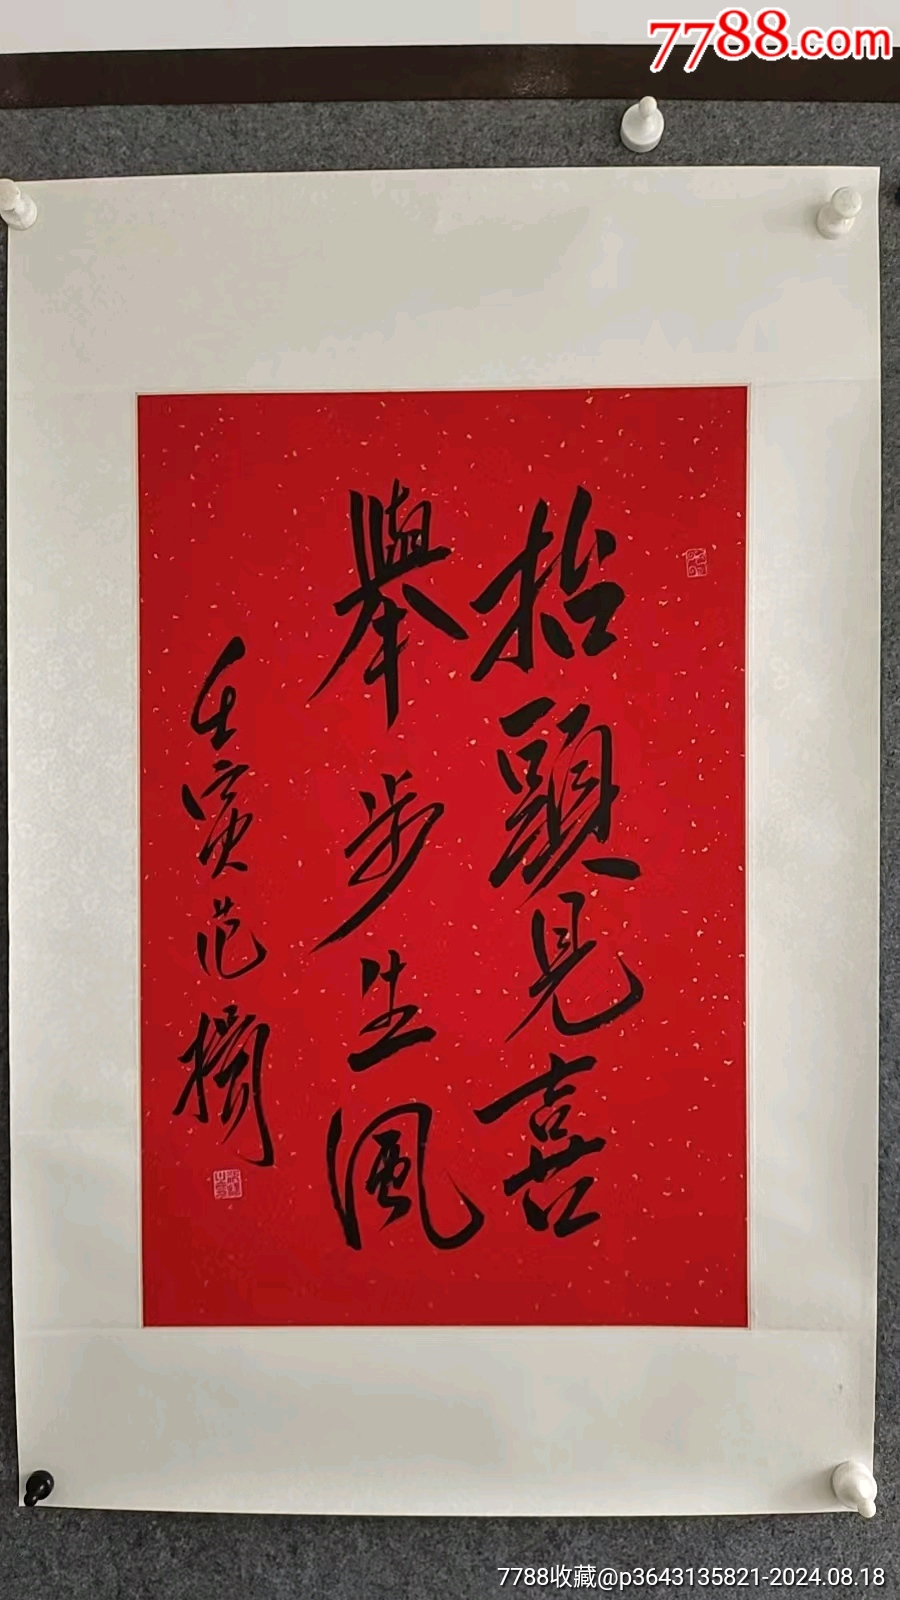 7788.com
抬頭見喜
舉步生風
壬寅范楊
7788收藏@p3643135821-2024.08.18